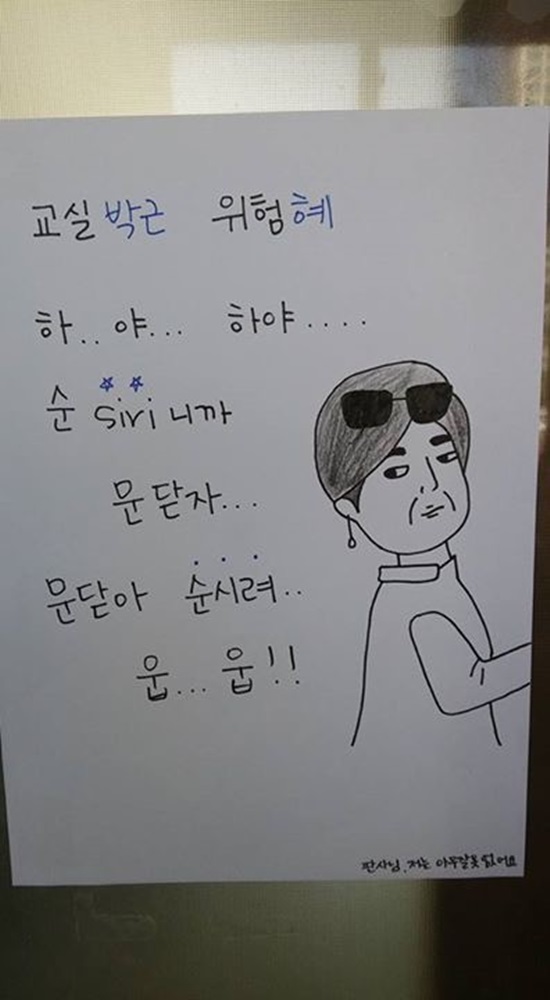 교실박근 위험혜
하..야... 하야....
순 siri 니까
문닫자...
문닫아 순시려..
웁...웁!!
판사님, 저는 아무잘못 없어요